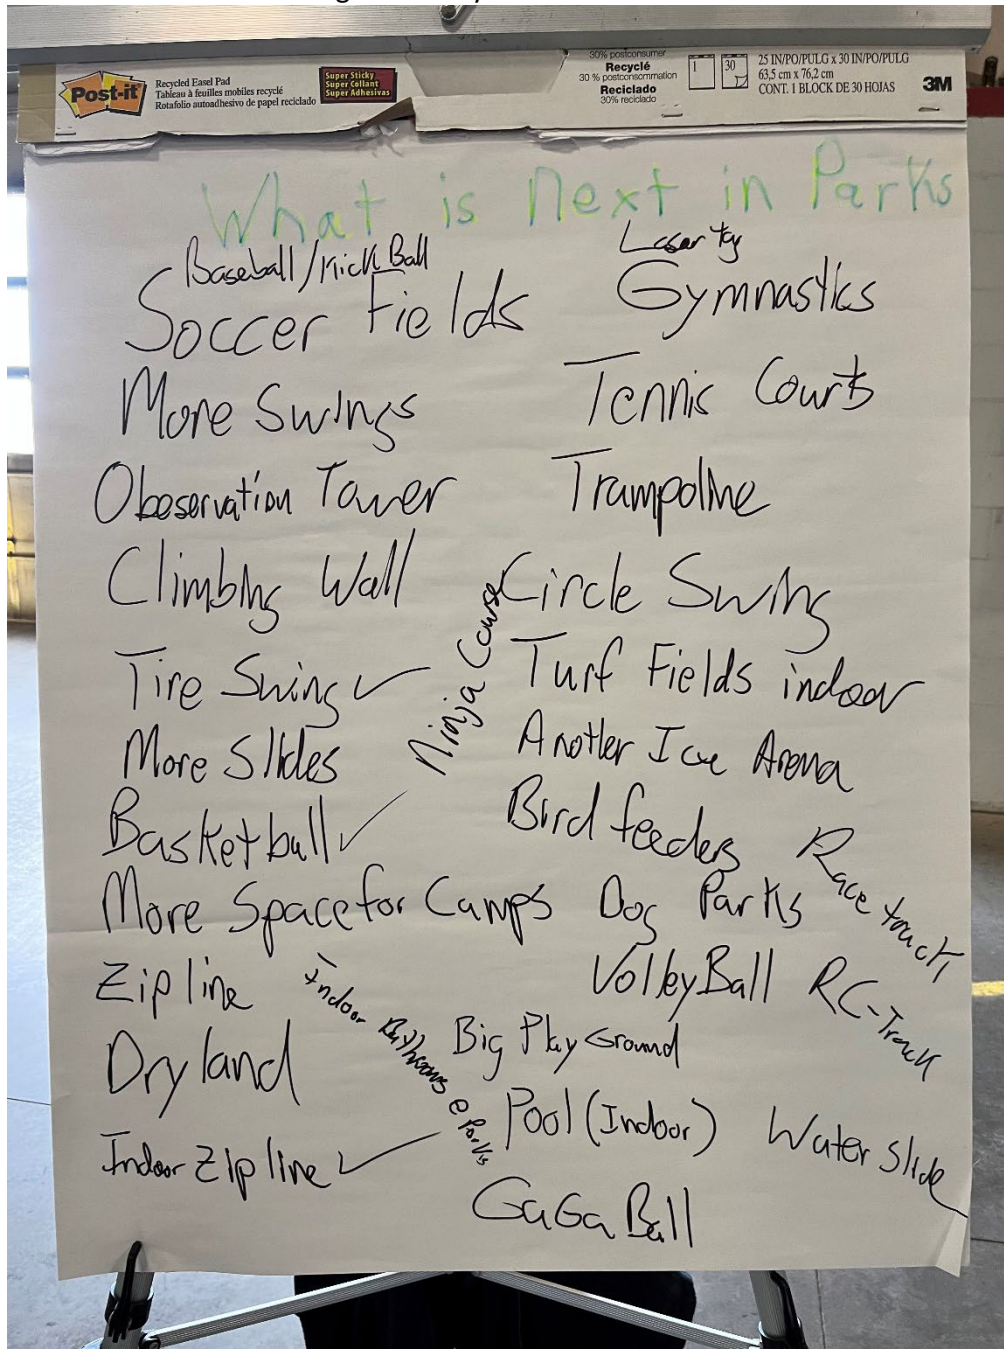 Post-it
Recycled Easel Pad
Tableau à feuilles mobiles recyclé
Rotafolio autoadhesivo de papel reciclado
Super Sticky
Super Collant
Super Adhesivas
30% postconsumer
Recyclé
30 % postconsommation
Reciclado
30% reciclado
1
30
25 IN/PO/PULG x 30 IN/PO/PULG
63,5 cm x 76,2 cm
CONT. 1 BLOCK DE 30 HOJAS
3M
What is next in Parks
Baseball/Kick Ball
Soccer Fields
More Swings
Obeservation Tower
Climbing Wall
Tire Swing
More Slides
Basketball
More Space for Camps
Zip line
Dry land
Indoor Zip line
Ninja Course
Indoor Bathrooms @ Parks
Laser tag
Gymnastics
Tennis Courts
Trampoline
Circle Swing
Turf Fields indoor
Another Ice Arena
Bird feeders
Dog Parks
Volley Ball
Big Play Ground
Pool (Indoor)
GaGa Ball
Race track
RC-Track
Water Slide